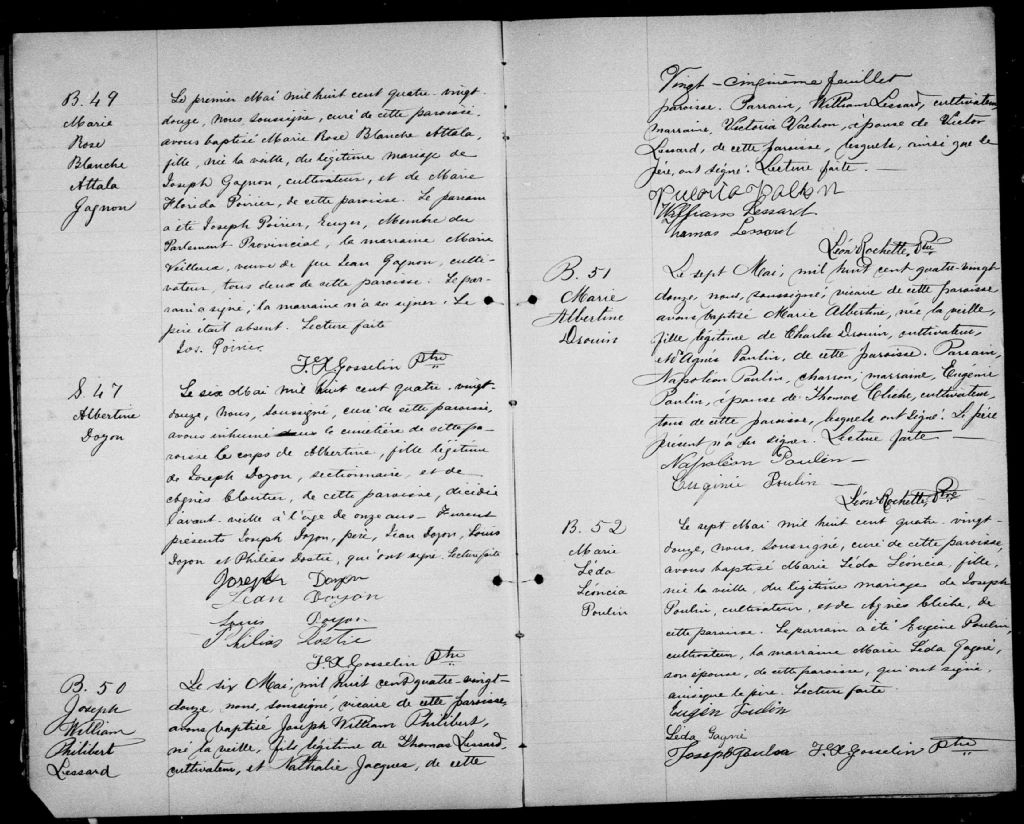 B. 49
Marie
Rose
Blanche
Attala
Gagnon
Le premier Mai mil huit cent quatre-vingt-
douze, nous, soussigné, curé de cette paroisse,
avons baptisé Marie Rose Blanche Attala,
fille, née la veille, du légitime mariage de
Joseph Gagnon, cultivateur, et de Marie
Florida Poirier, de cette paroisse. Le parrain
a été Joseph Poirier, Ecuyer, Membre du
Parlement Provincial, la marraine Marie
Veilleux, veuve de feu Jean Gagnon, culti-
vateur, tous deux de cette paroisse. Le par-
rain a signé; la marraine n'a su signer. Le
père était absent. Lecture faite
Jos. Poirier
F. X. Gosselin Ptre
S. 47
Albertine
Doyon
Le six Mai mil huit cent quatre-vingt-
douze, nous, soussigné, curé de cette paroisse,
avons inhumé dans le cimetière de cette pa-
roisse le corps de Albertine, fille légitime
de Joseph Doyon, sectionnaire, et de
Agnès Cloutier, de cette paroisse, décédée
l'avant-veille à l'âge de onze ans. Furent
présents Joseph Doyon, père, Jean Doyon, Louis
Doyon et Philias Dostie, qui ont signé. Lecture faite
Joseph Doyon
Jean Doyon
Louis Doyon
Philias Dostie
F. X. Gosselin Ptre
B. 50
Joseph
William
Philibert
Lessard
Le six Mai, mil huit cent quatre-vingt-
douze, nous, soussigné, vicaire de cette paroisse,
avons baptisé Joseph William Philibert,
né la veille, fils légitime de Thomas Lessard,
cultivateur, et Nathalie Jacques, de cette
Vingt-cinquième feuillet
paroisse. Parrain, William Lessard, cultivateur,
marraine, Victoria Vachon, épouse de Victor
Lessard, de cette paroisse, lesquels, ainsi que le
père, ont signé. Lecture faite.
William Lessard
Thomas Lessard
Léon Rochette, Ptre
B. 51
Marie
Albertine
Drouin
Le sept Mai, mil huit cent quatre-vingt-
douze, nous, soussigné, vicaire de cette paroisse
avons baptisé Marie Albertine, née la veille,
fille légitime de Charles Drouin, cultivateur,
et d'Agnès Poulin, de cette paroisse. Parrain,
Napoléon Poulin, charron, marraine, Eugénie
Poulin, épouse de Thomas Cliche, cultivateur,
tous de cette paroisse, lesquels ont signé. Le père
présent n'a su signer. Lecture faite
Napoléon Poulin
Eugénie Poulin
Léon Rochette, Ptre
B. 52
Marie
Léda
Léoncia
Poulin
Le sept Mai mil huit cent quatre-vingt-
douze, nous, soussigné, curé de cette paroisse,
avons baptisé Marie Léda Léoncia, fille,
née la veille, du légitime mariage de Joseph
Poulin, cultivateur, et de Agnès Cliche, de
cette paroisse. Le parrain a été Eugène Poulin
cultivateur, la marraine Marie Léda Gagné,
son épouse, de cette paroisse, qui ont signé
ainsi que le père. Lecture faite.
Eugèn Poulin
Léda Gagné
Joseph Poulin
F. X. Gosselin Ptre